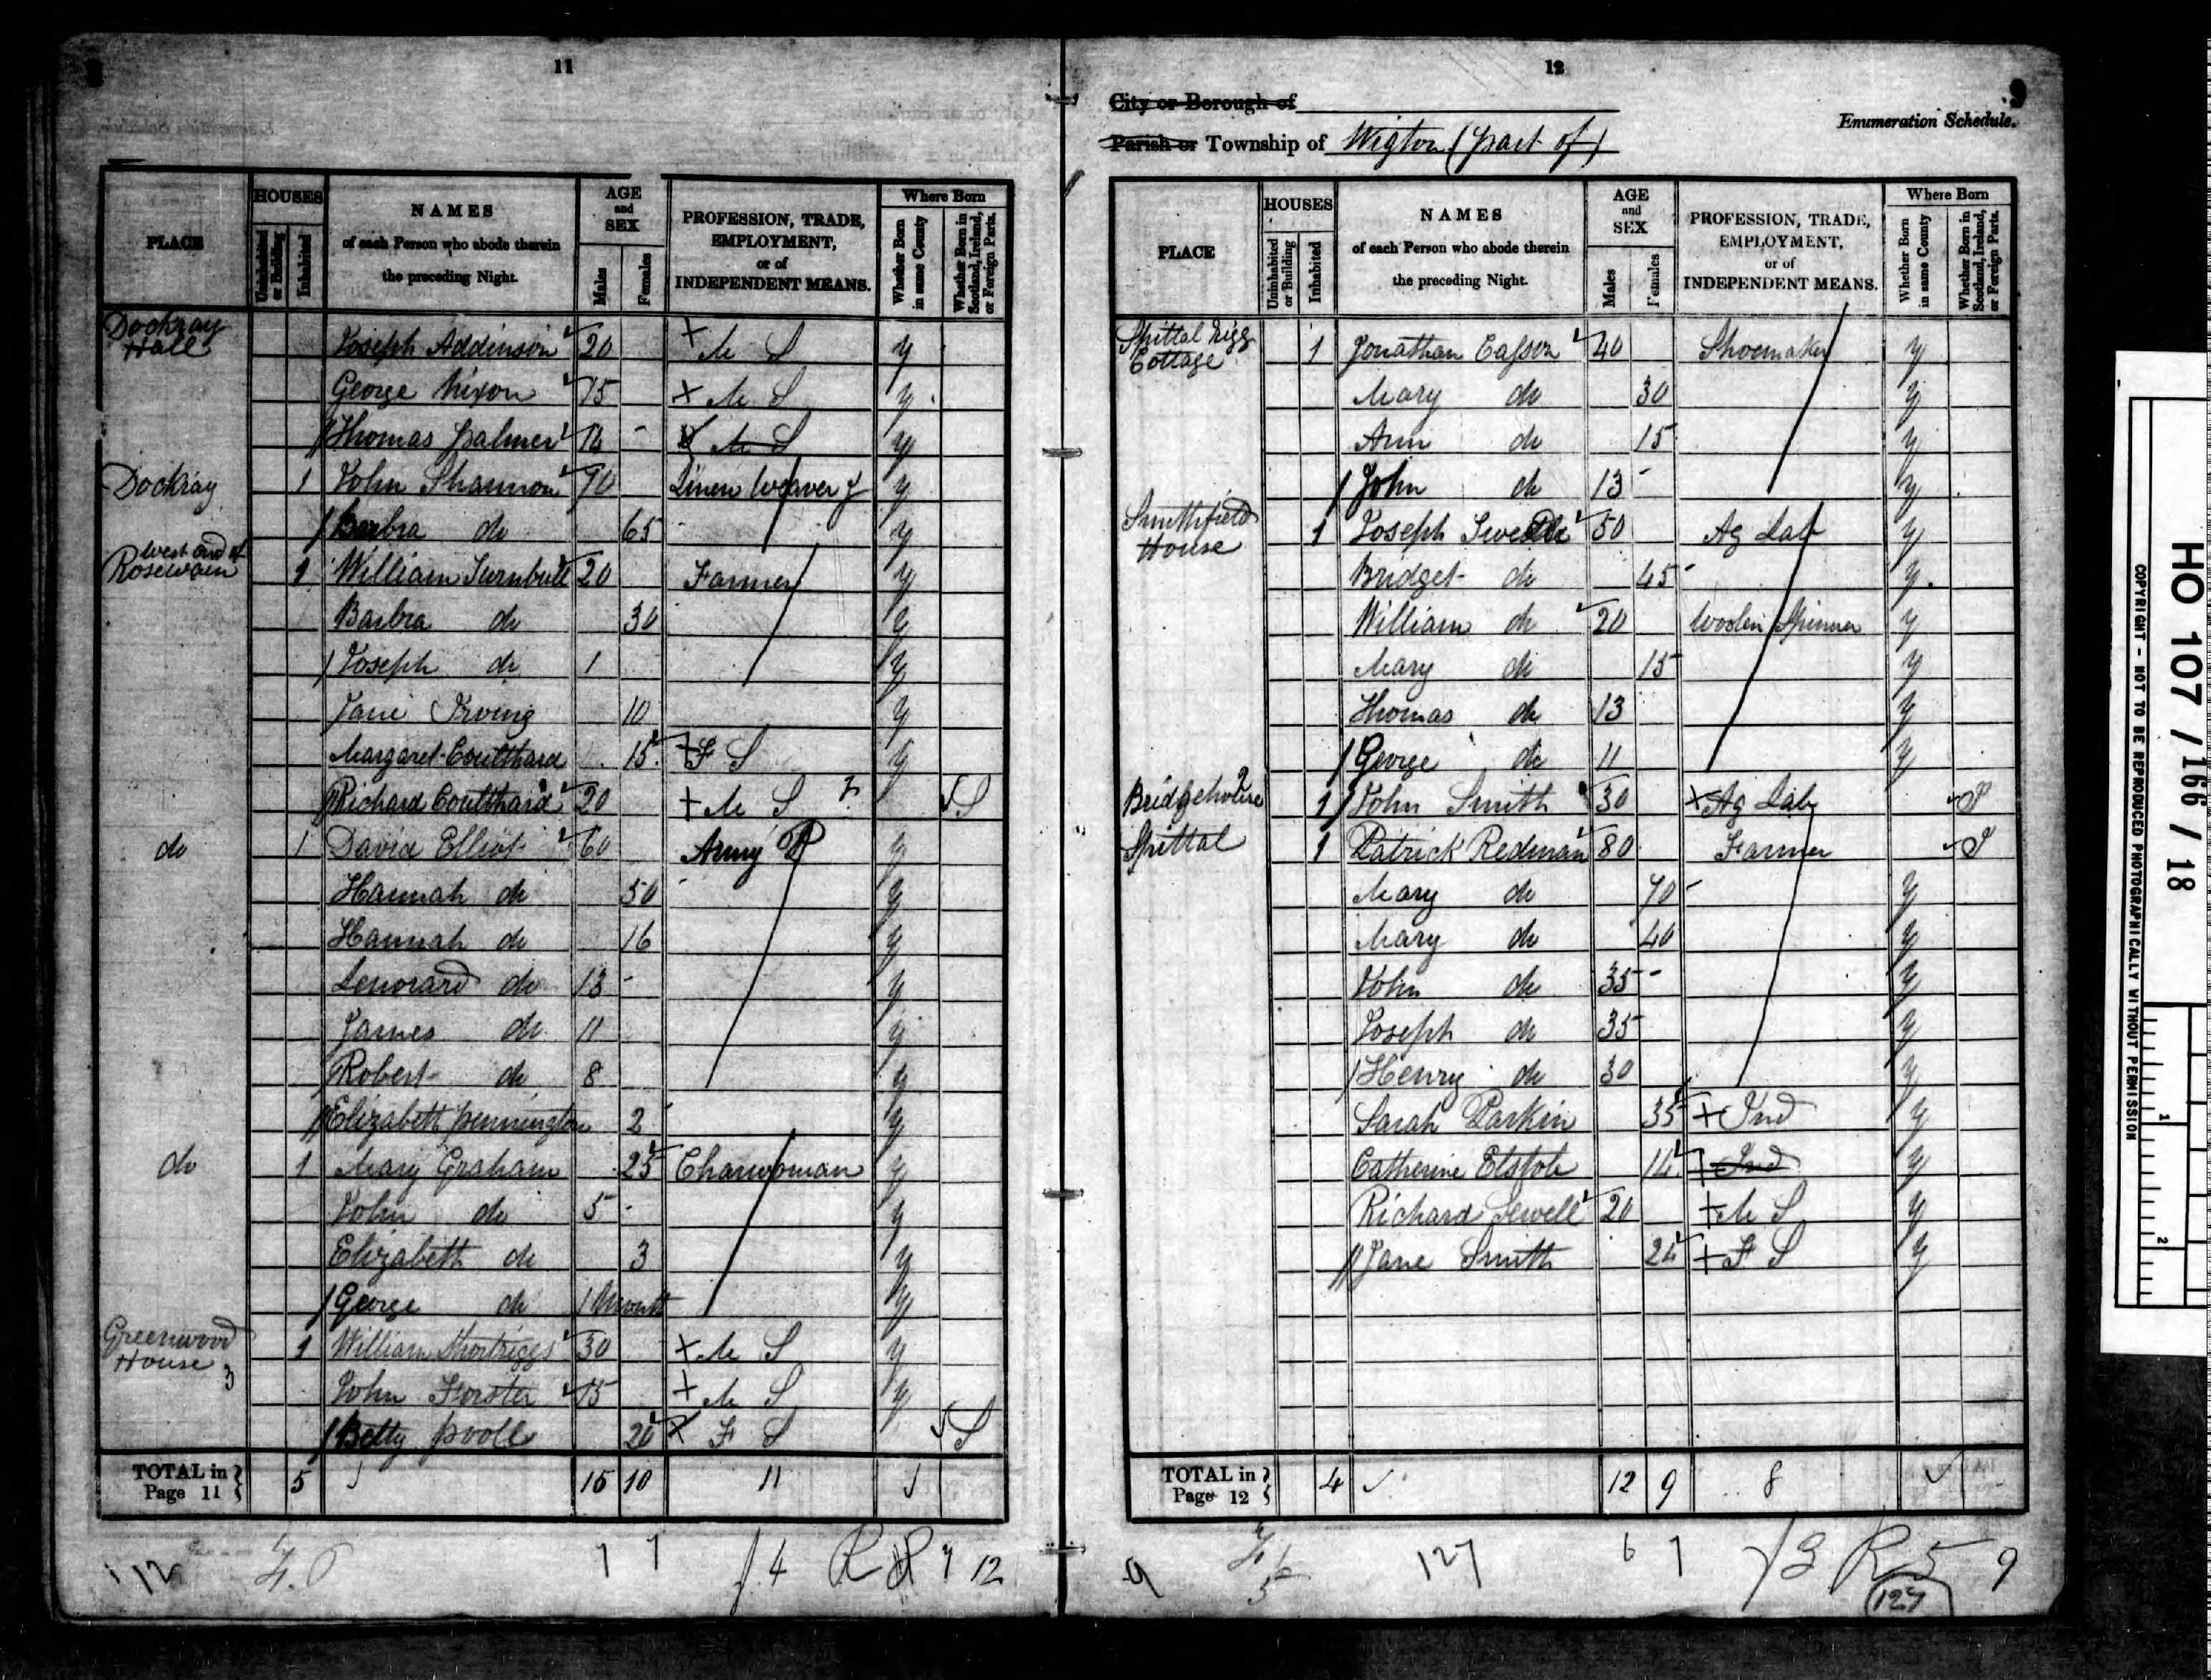 11
PLACE HOUSES Uninhabited or Building Inhabited NAMES of each Person who abode therein the preceding Night. AGE and SEX Males Females PROFESSION, TRADE, EMPLOYMENT, or of INDEPENDENT MEANS. Where Born Whether Born in same County Whether Born in Scotland, Ireland, or Foreign Parts.
Dockray Hall Joseph Addinson 20 M S y
George Nixon 15 M S y
Thomas palmer 14 M S y
Dockray 1 John Shannon 70 Linen Weaver J y
Barbra do 65 y
West End of Rosewain 1 William Turnbull 20 Farmer y
Barbra do 30 y
Joseph do 1 y
Jane Irving 10 y
Margaret Coulthard 15 F S y
Richard Coulthard 20 M S S
do 1 David Elliot 60 Army P y
Hannah do 50 y
Hannah do 16 y
Lenorard do 13 y
James do 11 y
Robert do 8 y
Elizabeth pennington 2 y
do 1 Mary Graham 25 Charwoman y
John do 5 y
Elizabeth do 3 y
George do 1 Month y
Greenwood House 1 William 30 M S y
3
John Forster 15 M S y
Betty 20 F S S
TOTAL in Page 11 5 15 10 11
12 7 7 4 R 7 12
12
City or Borough of
Enumeration Schedule.
Parish or Township of Wigton (part of)
PLACE HOUSES Uninhabited or Building Inhabited NAMES of each Person who abode therein the preceding Night. AGE and SEX Males Females PROFESSION, TRADE, EMPLOYMENT, or of INDEPENDENT MEANS. Where Born Whether Born in same County Whether Born in Scotland, Ireland, or Foreign Parts.
Spittal rigg Cottage 1 Jonathan Casson 40 Shoemaker y
Mary do 30 y
Ann do 15 y
John do 13 y
Smithfield House 1 Joseph 50 Ag Lab y
Bridget do 45 y
William do 20 Woolen Spinner y
Mary do 15 y
Thomas do 13 y
George do 11 y
Bridgehouse 1 John Smith 30 Ag Lab I
Spittal 1 Patrick Redman 80 Farmer I
Mary do 70 y
Mary do 40 y
John do 35 y
Joseph do 35 y
Henry do 30 y
Sarah Parkin 35 Ind y
Catherine 14 Ind y
Richard Sewell 20 M S y
Jane Smith 24 F S y
TOTAL in Page 12 4 12 9 8
9 127 6 7 3 R 5 9
127
HO 107 / 166 / 18
COPYRIGHT - NOT TO BE REPRODUCED PHOTOGRAPHICALLY WITHOUT PERMISSION
1
2